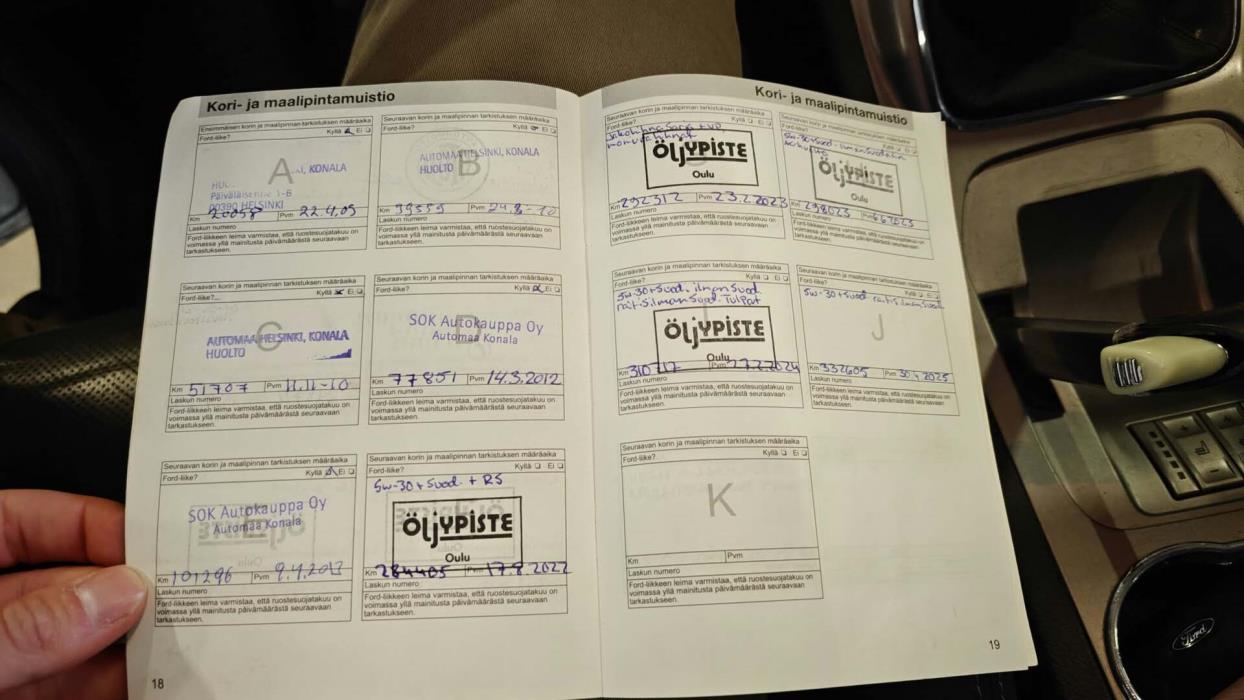 Kori- ja maalipintamuistio
Ensimmäisen korin ja maalipinnan tarkistuksen määräaika
Ford-liike?
Kyllä Ei
A
KONALA
Päiväläisentie 1-6
00390 HELSINKI
Km 20058 Pvm 22.4.09
Laskun numero
Ford-liikkeen leima varmistaa, että ruostesuojatakuu on
voimassa yllä mainitusta päivämäärästä seuraavaan
tarkastukseen.
Seuraavan korin ja maalipinnan tarkistuksen määräaika
Ford-liike?
Kyllä Ei
B
AUTOMAA HELSINKI, KONALA
HUOLTO
Km 39559 Pvm 24.8-10
Laskun numero
Ford-liikkeen leima varmistaa, että ruostesuojatakuu on
voimassa yllä mainitusta päivämäärästä seuraavaan
tarkastukseen.
Seuraavan korin ja maalipinnan tarkistuksen määräaika
Ford-liike?
Kyllä Ei
C
AUTOMAA HELSINKI, KONALA
HUOLTO
Km 51707 Pvm 11.11-10
Laskun numero
Ford-liikkeen leima varmistaa, että ruostesuojatakuu on
voimassa yllä mainitusta päivämäärästä seuraavaan
tarkastukseen.
Seuraavan korin ja maalipinnan tarkistuksen määräaika
Ford-liike?
Kyllä Ei
D
SOK Autokauppa Oy
Automaa Konala
Km 77851 Pvm 14.3.2012
Laskun numero
Ford-liikkeen leima varmistaa, että ruostesuojatakuu on
voimassa yllä mainitusta päivämäärästä seuraavaan
tarkastukseen.
Seuraavan korin ja maalipinnan tarkistuksen määräaika
Ford-liike?
Kyllä Ei
E
SOK Autokauppa Oy
Automaa Konala
Km 101296 Pvm 9.4.2013
Laskun numero
Ford-liikkeen leima varmistaa, että ruostesuojatakuu on
voimassa yllä mainitusta päivämäärästä seuraavaan
tarkastukseen.
Seuraavan korin ja maalipinnan tarkistuksen määräaika
Ford-liike?
Kyllä Ei
5w-30 + Suod. + RS
ÖljYPISTE
Oulu
Km 284405 Pvm 17.8.2022
Laskun numero
Ford-liikkeen leima varmistaa, että ruostesuojatakuu on
voimassa yllä mainitusta päivämäärästä seuraavaan
tarkastukseen.
18
Kori- ja maalipintamuistio
Seuraavan korin ja maalipinnan tarkistuksen määräaika
Ford-liike?
Kyllä Ei
Jakohihnasarja + VP
ÖljYPISTE
Oulu
Km 292312 Pvm 23.2.2023
Laskun numero
Ford-liikkeen leima varmistaa, että ruostesuojatakuu on
voimassa yllä mainitusta päivämäärästä seuraavaan
tarkastukseen.
Seuraavan korin ja maalipinnan tarkistuksen määräaika
Ford-liike?
Kyllä Ei
ÖljYPISTE
Oulu
Km 298023 Pvm 6.6.2023
Laskun numero
Ford-liikkeen leima varmistaa, että ruostesuojatakuu on
voimassa yllä mainitusta päivämäärästä seuraavaan
tarkastukseen.
Seuraavan korin ja maalipinnan tarkistuksen määräaika
Kyllä Ei
5w-30+Suod. ilmanSuod.
rait.S.ilmanSuod. TulPat
ÖljYPISTE
Oulu
Km 310717 Pvm 27.2.2024
Laskun numero
Ford-liikkeen leima varmistaa, että ruostesuojatakuu on
voimassa yllä mainitusta päivämäärästä seuraavaan
tarkastukseen.
Seuraavan korin ja maalipinnan tarkistuksen määräaika
Ford-liike?
Kyllä Ei
5w-30+Suod. rait.S ilmanSuod.
J
Km 332605 Pvm 30.4.2025
Laskun numero
Ford-liikkeen leima varmistaa, että ruostesuojatakuu on
voimassa yllä mainitusta päivämäärästä seuraavaan
tarkastukseen.
Seuraavan korin ja maalipinnan tarkistuksen määräaika
Ford-liike?
Kyllä Ei
K
Km Pvm
Laskun numero
Ford-liikkeen leima varmistaa, että ruostesuojatakuu on
voimassa yllä mainitusta päivämäärästä seuraavaan
tarkastukseen.
19
Ford